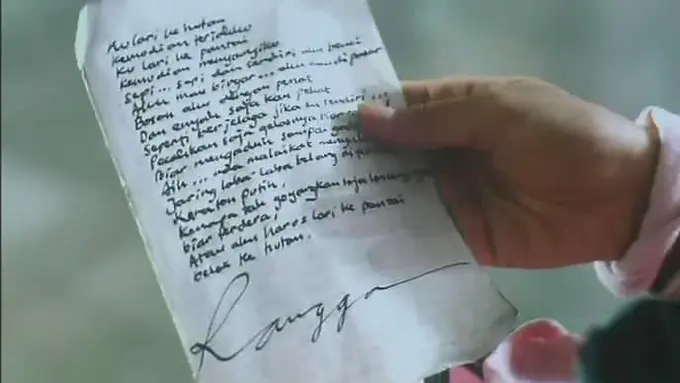 Ku lari ke hutan
Kemudian teriakku
Ku lari ke pantai
Kemudian menyanyiku
Sepi... sepi dan sendiri aku benci
Aku mau bingar... aku mau di pasar
Bosan aku dengan penat
Dan enyah saja kau pekat
Seperti berjelaga jika ku sendiri...
Pecahkan saja gelasnya biar
Biar mengaduh sampai
Aih... ada malaikat
Jaring laba-laba belang di
keraton putih,
Kenapa tak goyangkan saja loncengnya
biar terdera,
Atau aku harus lari ke pantai
belok ke hutan.
Rangga